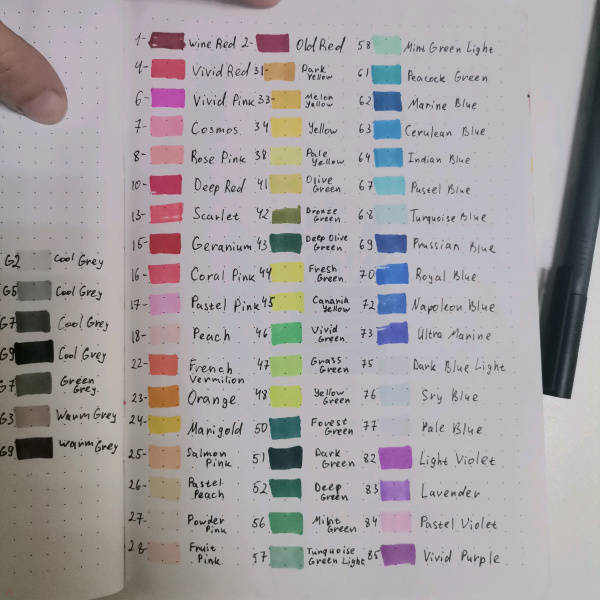 G2 Cool Grey
G5 Cool Grey
G7 Cool Grey
G9 Cool Grey
G7 Green
Grey
G3 Warm Grey
G9 Warm Grey
1- Wine Red
4- Vivid Red
6- Vivid Pink
7- Cosmos
8- Rose Pink
10- Deep Red
13- Scarlet
15- Geranium
16- Coral Pink
17- Pastel Pink
18- Peach
22- French
Vermilion
23- Orange
24- Marigold
25- Salmon
Pink
26- Pastel
Peach
27- Powder
Pink
28- Fruit
Pink
2- Old Red
31- Dark
Yellow
33- Melon
Yellow
34 Yellow
38 Pale
Yellow
41 Olive
Green
42 Bronze
Green
43 Deep Olive
Green
44 Fresh
Green
45 Canaria
Yellow
46 Vivid
Green
47 Grass
Green
48 Yellow
Green
50 Forest
Green
51 Dark
Green
52 Deep
Green
56 Mint
Green
57 Turquoise
Green Light
58 Mint Green Light
61 Peacock Green
62 Marine Blue
63 Cerulean Blue
64 Indian Blue
67 Pastel Blue
68 Turquoise Blue
69 Prussian Blue
70 Royal Blue
72 Napoleon Blue
73 Ultra Marine
75 Dark Blue Light
76 Sry Blue
77 Pale Blue
82 Light Violet
83 Lavender
84 Pastel Violet
85 Vivid Purple